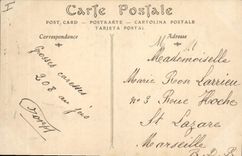 Carte Postale
POST-CARD — POSTKARTE — CARTOLINA POSTALE
TARJETA POSTAL
Correspondance
Adresse
Grosses caresses
Mademoiselle
Marie Rose Larrieu
No 3 Roue Hoche
St Lazare
Marseille